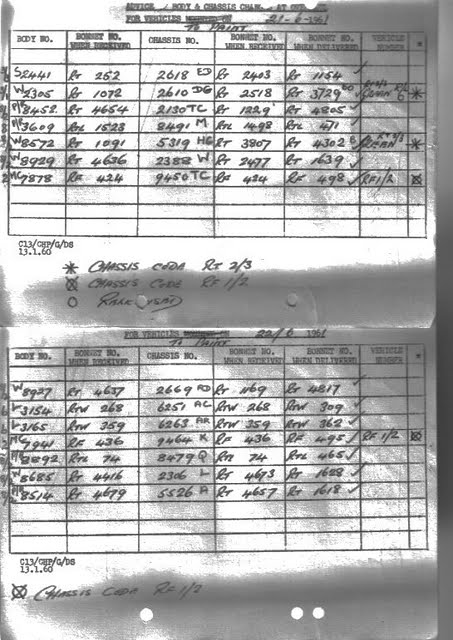 ADVICE BODY & CHASSIS CHAN AT
FOR VEHICLES TO PAINT 21-6-1961
BODY NO. BONNET NO. WHEN RECEIVED CHASSIS NO. BONNET NO. WHEN RECEIVED BONNET NO. WHEN DELIVERED VEHICLE NUMBER *
S2441 RT 262 2618 ED RT 2403 RT 1154 ✓
W2305 RT 1072 2610 DG RT 2518 RT 3729 RT 2/3 6 *
HR 8452 RT 4654 2130 TC RT 1229 RT 4805 ✓
HR 3609 RTL 1523 8491 M RTL 1498 RTL 471 ✓
W8572 RT 1091 5319 HG RT 3807 RT 4302 RT 2/3 *
W8929 RT 4636 2388 W RT 2477 RT 1639 ✓
MC 7878 RF 424 9450 TC RF 424 RF 498 ✓ RF 1/2
C13/CHP/G/DS
13.1.60
* CHASSIS CODE RT 2/3
CHASSIS CODE RF 1/2
FOR VEHICLES TO PAINT 22/6 1961
BODY NO. BONNET NO. WHEN RECEIVED CHASSIS NO. BONNET NO. WHEN RECEIVED BONNET NO. WHEN DELIVERED VEHICLE NUMBER *
W8927 RT 4637 2669 RD RT 469 RT 4817 ✓
L3154 RTW 268 6251 AC RTW 268 RTW 309 ✓
L3165 RTW 359 6263 AR RTW 359 RTW 362 ✓
MC 7941 RF 436 9464 K RF 436 RF 495 ✓ RF 1/2
RTL 74 8479 Q RTL 74 RTL 465 ✓
W8685 RT 4416 2306 L RT 4673 RT 1628 ✓
HR 8514 RT 4679 5526 A RT 4657 RT 1618 ✓
C13/CHP/G/DS
13.1.60
CHASSIS CODE RF 1/2